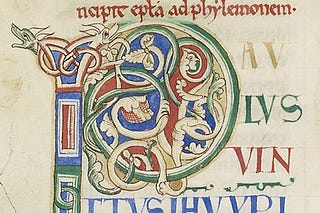 ncipit epła ad phylemonem.
PAV
LVS
VIN
CTVS IHV XPI